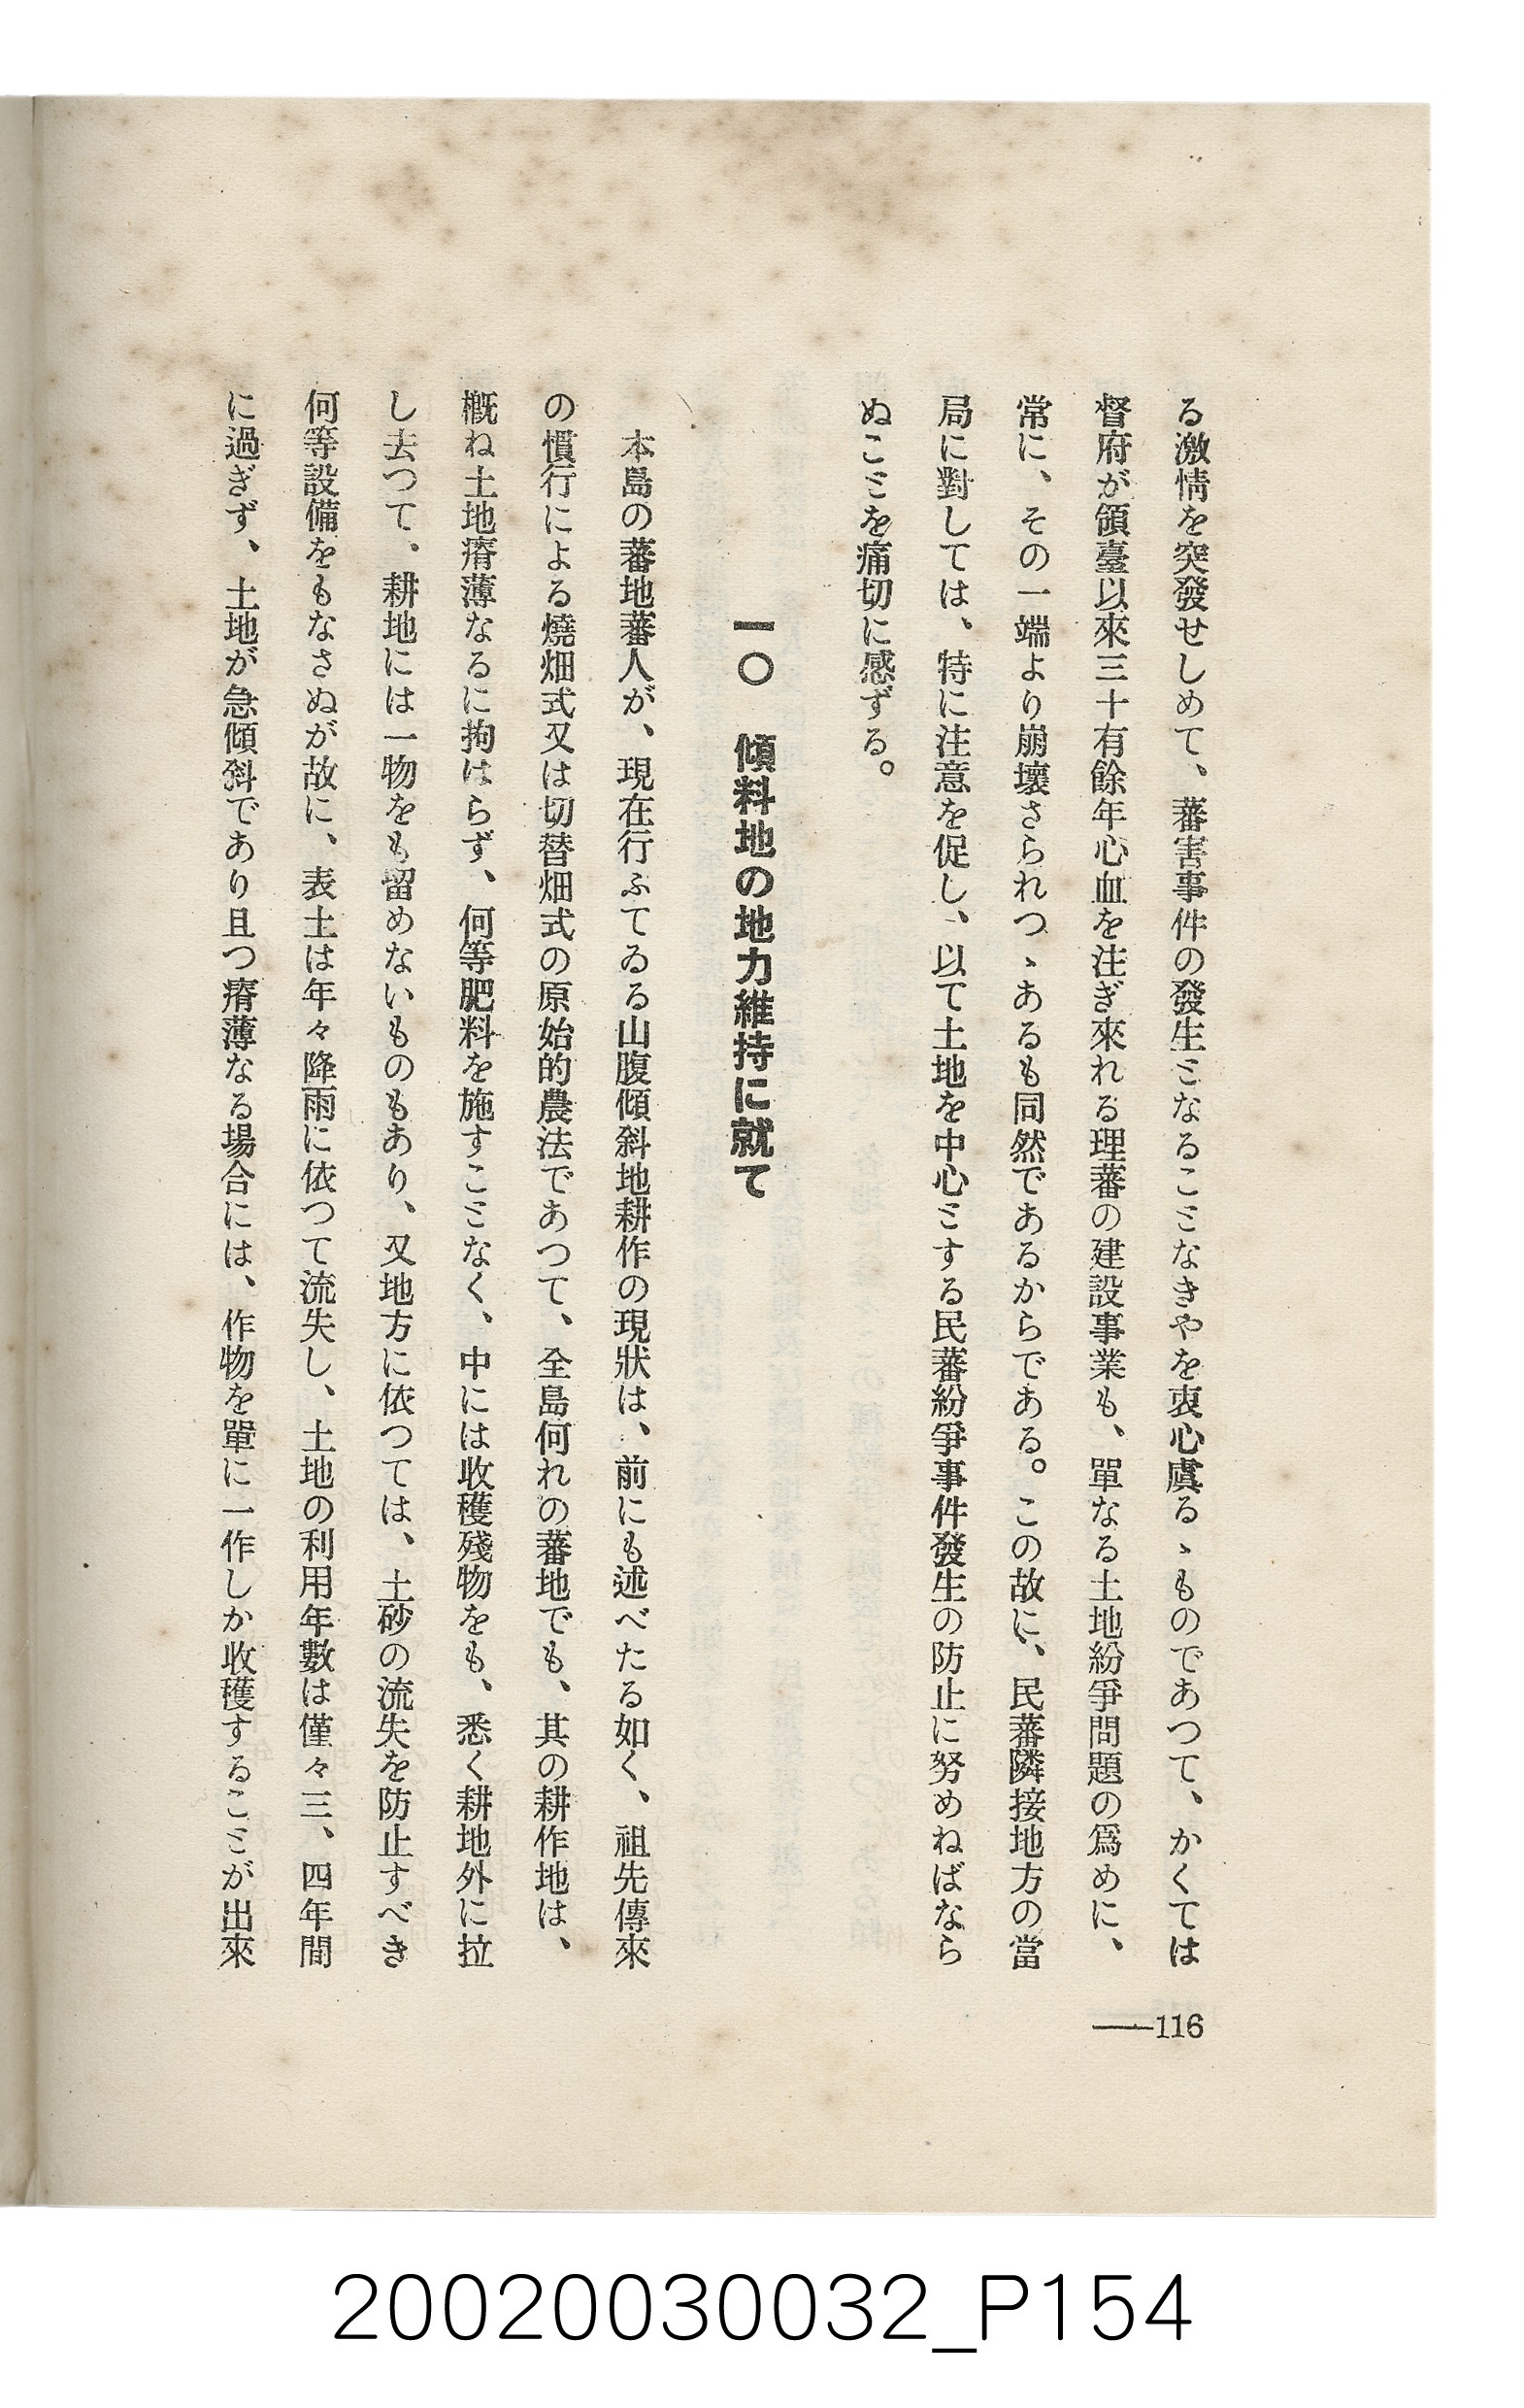 る激情を突發せしめて、蕃害事件の發生ミなるこミなきやを衷心虞るゝものであつて、かくては
督府が領臺以來三十有餘年心血を注ぎ來れる理蕃の建設事業も、單なる土地紛爭問題の爲めに、
常に、その一端より崩壞さられつゝあるも同然であるからである。この故に、民蕃隣接地方の當
局に對しては、特に注意を促し、以て土地を中心ミする民蕃紛爭事件發生の防止に努めねばなら
ぬこミを痛切に感ずる。
一〇 傾料地の地力維持に就て
本島の蕃地蕃人が、現在行ふてゐる山腹傾斜地耕作の現狀は、前にも述べたる如く、祖先傳來
の慣行による燒畑式又は切替畑式の原始的農法であつて、全島何れの蕃地でも、其の耕作地は、
槪ね土地瘠薄なるに拘はらず、何等肥料を施すこミなく、中には收穫殘物をも、悉く耕地外に拉
し去つて、耕地には一物をも留めないものもあり、又地方に依つては、土砂の流失を防止すべき
何等設備をもなさぬが故に、表土は年々降雨に依つて流失し、土地の利用年數は僅々三、四年間
に過ぎず、土地が急傾斜であり且つ瘠薄なる場合には、作物を單に一作しか收穫するこミが出來
——116
20020030032_P154